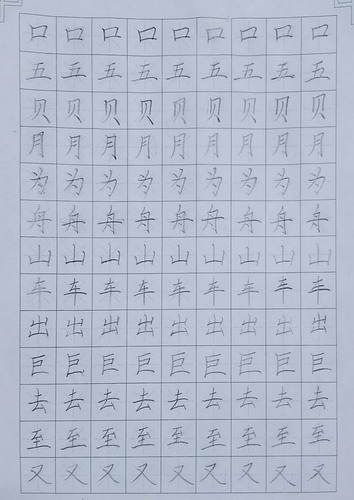 口口口口口口口口口
五五五五五五五五五
贝贝贝贝贝贝贝贝贝
月月月月月月月月月
为为为为为为为为为
舟舟舟舟舟舟舟舟舟
山山山山山山山山山
车车车车车车车车车
出出出出出出出出出
巨巨巨巨巨巨巨巨巨
去去去去去去去去去
至至至至至至至至至
又又又又又又又又又